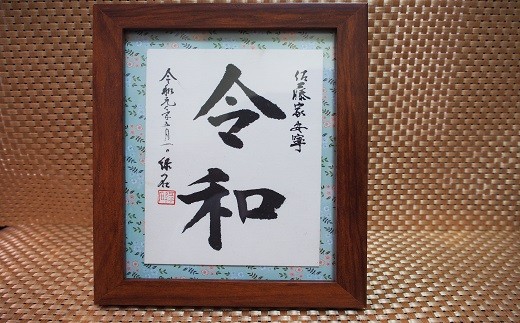 佐藤家安寧
令和
令和元年五月一日